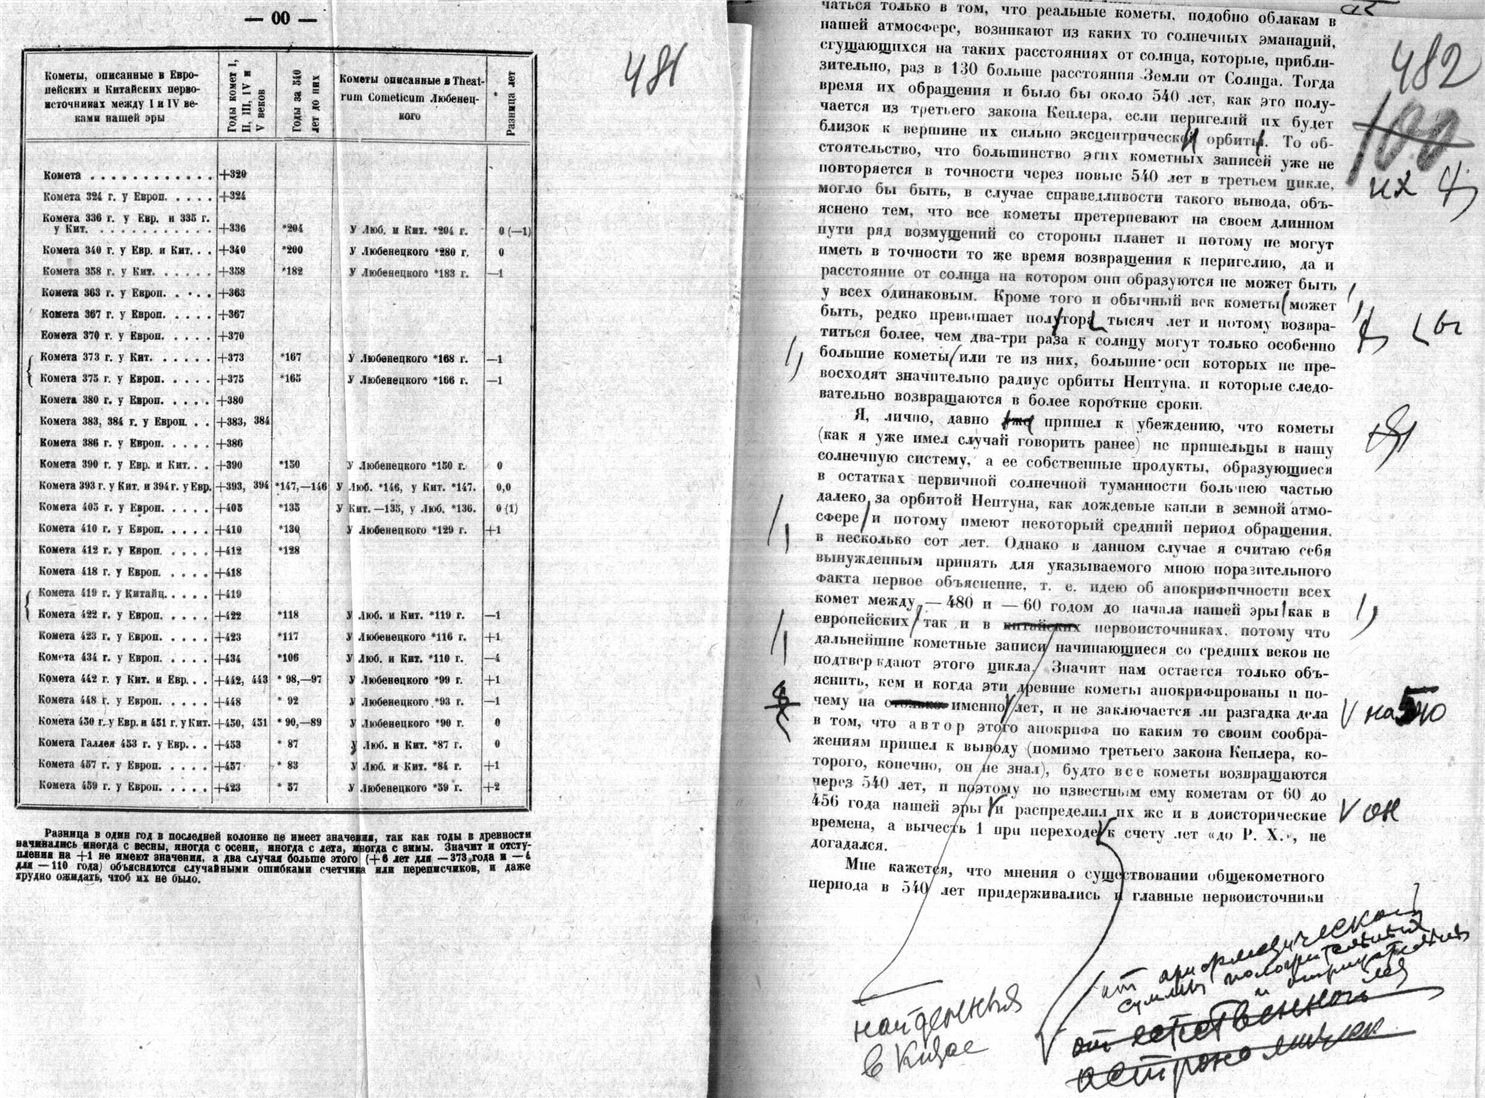 — 00 —
481
Кометы, описанные в Евро-
пейских и Китайских перво-
источниках между I и IV ве-
ками нашей эры
Годы комет I,
II, III, IV и
V веков
Годы за 540
лет до них
Кометы описанные в Theat-
rum Cometicum Любенец-
кого
Разница лет
Комета . . . . . . . . . . . . +320
Комета 324 г. у Европ. . . . . +324
Комета 336 г. у Евр. и 335 г.
у Кит. . . . . . . . . . . . +336 *204 У Люб. и Кит. *204 г. 0 (—1)
Комета 340 г. у Евр. и Кит. . . +340 *200 У Любенецкого *280 г. 0
Комета 358 г. у Кит. . . . . . +358 *182 У Любенецкого *183 г. —1
Комета 363 г. у Европ. . . . . +363
Комета 367 г. у Европ. . . . . +367
Еомета 370 г. у Европ. . . . . +370
Комета 373 г. у Кит. . . . . . +373 *167 У Любенецкого *168 г. —1
Комета 375 г. у Европ. . . . . +375 *165 У Любенецкого *166 г. —1
Комета 380 г. у Европ. . . . . +380
Комета 383, 384 г. у Европ. . . +383, 384
Комета 386 г. у Европ. . . . . +386
Комета 390 г. у Евр. и Кит. . . +390 *150 У Любенецкого *150 г. 0
Комета 393 г. у Кит. и 394 г. у Евр. +393, 394 *147,—146 У Люб. *146, у Кит. *147. 0,0
Комета 405 г. у Европ. . . . . +405 *135 У Кит. —135, у Люб. *136. 0 (1)
Комета 410 г. у Европ. . . . . +410 *130 У Любенецкого *129 г. +1
Комета 412 г. у Европ. . . . . +412 *128
Комета 418 г. у Европ. . . . . +418
Комета 419 г. у Китайц. . . . . +419
Комета 422 г. у Европ. . . . . +422 *118 У Люб. и Кит. *119 г. —1
Комета 423 г. у Европ. . . . . +423 *117 У Любенецкого *116 г. +1
Комета 434 г. у Европ. . . . . +434 *106 У Люб. и Кит. *110 г. —4
Комета 442 г. у Кит. и Евр. . . +442, 443 * 98,—97 У Любенецкого *99 г. +1
Комета 448 г. у Европ. . . . . +448 * 92 У Любенецкого *93 г. —1
Комета 450 г. у Евр. и 451 г. у Кит. +450, 451 * 90,—89 У Любенецкого *90 г. 0
Комета Галлея 453 г. у Евр. . . +453 * 87 У Люб. и Кит. *87 г. 0
Комета 457 г. у Европ. . . . . +457 * 83 У Люб. и Кит. *84 г. +1
Комета 459 г. у Европ. . . . . +423 * 57 У Любенецкого *59 г. +2
Разница в один год в последней колонке не имеет значения, так как годы в древности
начинались иногда с весны, иногда с осени, иногда с лета, иногда с зимы. Значит и отсту-
пления на +1 не имеют значения, а два случая больше этого (+6 лет для —373 года и —4
для —110 года) объясняются случайными ошибками счетчика или переписчиков, и даже
трудно ожидать, чтоб их не было.
чаться только в том, что реальные кометы, подобно облакам в
нашей атмосфере, возникают из каких то солнечных эманаций,
сгущающихся на таких расстояниях от солнца, которые, прибли-
зительно, раз в 130 больше расстояния Земли от Солнца. Тогда
время их обращения и было бы около 540 лет, как это полу-
чается из третьего закона Кеплера, если перигелий их будет
близок к вершине их сильно эксцентрической орбиты. То об-
стоятельство, что большинство этих кометных записей уже не
повторяется в точности через новые 540 лет в третьем цикле,
могло бы быть, в случае справедливости такого вывода, объ-
яснено тем, что все кометы претерпевают на своем длинном
пути ряд возмущений со стороны планет и потому не могут
иметь в точности то же время возвращения к перигелию, да и
расстояние от солнца на котором они образуются не может быть
у всех одинаковым. Кроме того и обычный век кометы может
быть, редко превышает полутора тысяч лет и потому возвра-
титься более, чем два-три раза к солнцу могут только особенно
большие кометы или те из них, большие оси которых не пре-
восходят значительно радиус орбиты Нептуна. и которые следо-
вательно возвращаются в более короткие сроки.
Я, лично, давно уже пришел к убеждению, что кометы
(как я уже имел случай говорить ранее) не пришельцы в нашу
солнечную систему, а ее собственные продукты, образующиеся
в остатках первичной солнечной туманности большею частью
далеко за орбитой Нептуна, как дождевые капли в земной атмо-
сфере и потому имеют некоторый средний период обращения.
в несколько сот лет. Однако в данном случае я считаю себя
вынужденным принять для указываемого мною поразительного
факта первое объяснение, т. е. идею об апокрифичности всех
комет между — 480 и — 60 годом до начала нашей эры как в
европейских так и в китайских первоисточниках. потому что
дальнейшие кометные записи начинающиеся со средних веков не
подтверждают этого цикла. Значит нам остается только объ-
яснить, кем и когда эти древние кометы апокрифированы и по-
чему на столько именно лет, и не заключается ли разгадка дела
в том, что автор этого апокрифа по каким то своим сообра-
жениям пришел к выводу (помимо третьего закона Кеплера, ко-
торого, конечно, он не знал), будто все кометы возвращаются
через 540 лет, и поэтому по известным ему кометам от 60 до
456 года нашей эры и распределил их же и в доисторические
времена, а вычесть 1 при переходе к счету лет «до Р. Х.», не
догадался.
Мне кажется, что мнения о существовании общекометного
периода в 540 лет придерживались и главные первоисточники
482
100
их
ы
на 540
он
найденныя
в Китае
от арифметической
суммы положительных
и отрицательных
лет
от естественной
астрономическ